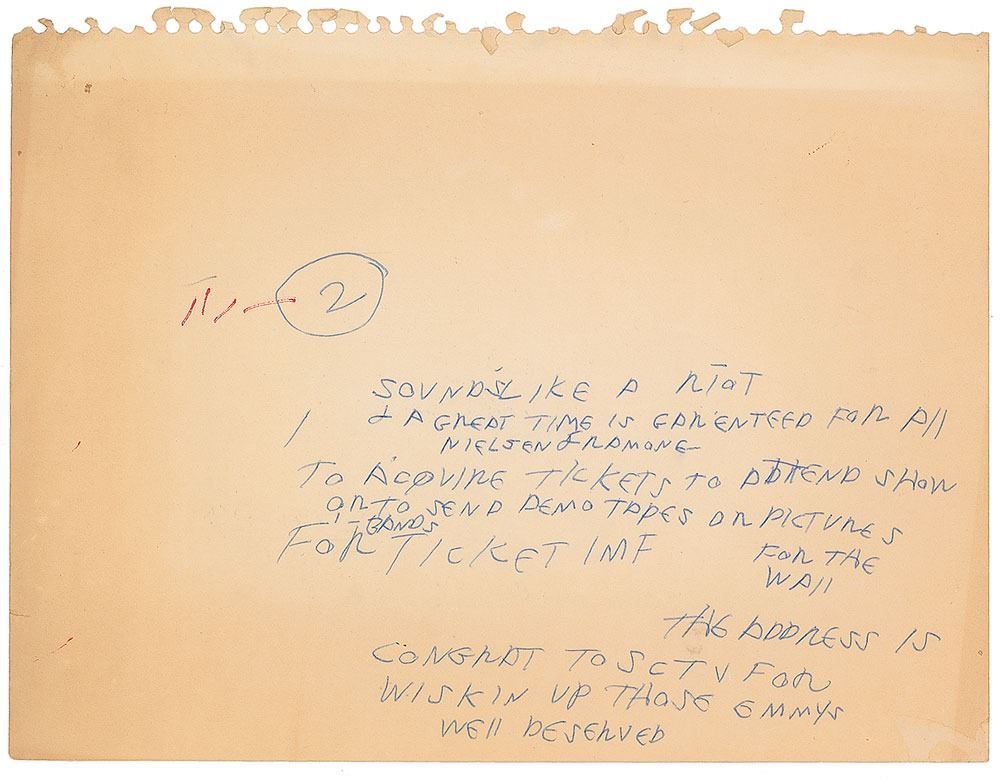 2
SOUNDS LIKE A RIOT
& A GREAT TIME IS GARENTEED FOR All
NIELSEN & RAMONE
TO ACQUIRE TICKETS TO ATTEND SHOW
OR TO SEND DEMO TAPES OR PICTURES
BANDS
FOR THE
FOR TICKET IMF
WAll
THE ADDRESS IS
CONGRAT TO SCTV FOR
WISKIN UP THOSE EMMYS
WEll DESERVED